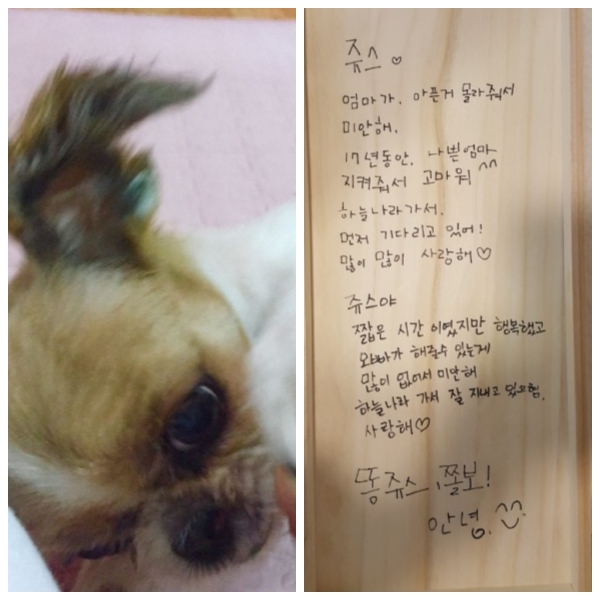 쥬스♡
엄마가. 아픈거 몰라줘서
미안해.
17년동안. 나쁜엄마
지켜줘서 고마워 ^^
하늘나라가서.
먼저 기다리고 있어!
많이 많이 사랑해♡
쥬스야
짧은 시간 이였지만 행복했고
오빠가 해줄수 있는게
많이 없어서 미안해
하늘나라 가서 잘 지내고 있으렴.
사랑해♡
똥쥬스, 쫄보!
안녕. ^^